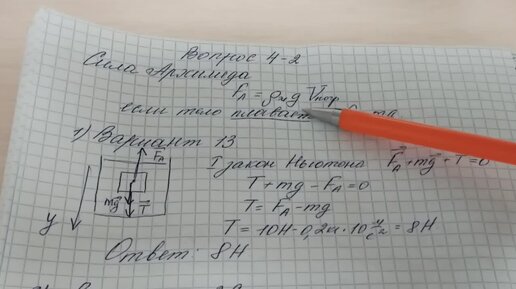 Вопрос 4-2
Сила Архимеда
F_A = ρ_ж g V_погр
если тело плавает mg
1) Вариант 13
F_A
I закон Ньютона F⃗_A + mg⃗ + T⃗ = 0
T + mg - F_A = 0
mg⃗ T⃗
T = F_A - mg
y
T = 10Н - 0,2кг · 10 м/с² = 8Н
Ответ: 8Н